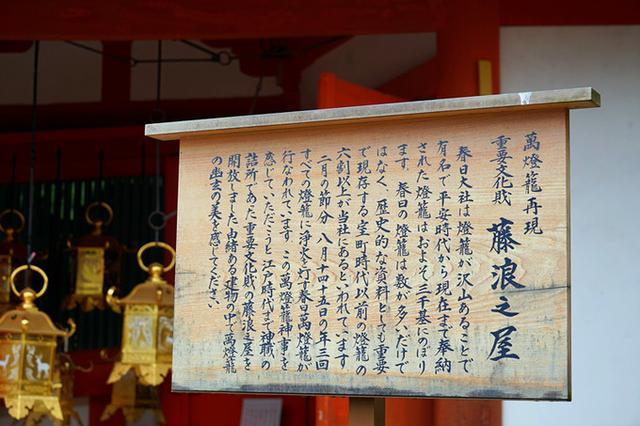 萬燈籠再現
重要文化財 藤浪之屋
春日大社は燈籠が沢山あることで
有名で平安時代から現在まで奉納
された燈籠はおよそ三千基にのぼり
ます。春日の燈籠は数が多いだけで
はなく、歴史的な資料としても重要
で現存する室町時代以前の燈籠の
六割以上が当社にあるといわれています
二月の節分 八月十四十五日の年三回
すべての燈籠に浄火を灯す春日萬燈籠が
行なわれています この萬燈籠神事を
感じていただこうと江戸時代まで神職の
詰所であった重要文化財の藤浪之屋を
開放しました 由緒ある建物の中で萬燈籠
の幽玄の美を感じてください